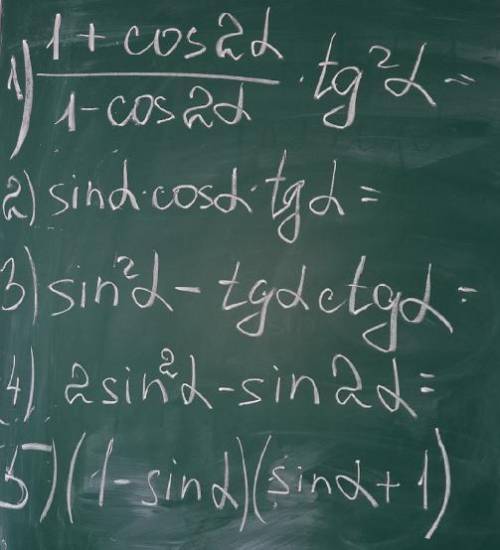 1) (1 + cos2α)/(1 - cos2α) · tg²α =
2) sinα · cosα · tgα =
3) sin²α - tgα ctgα =
4) 2sin²α - sin2α =
5) (1 - sinα)(sinα + 1)